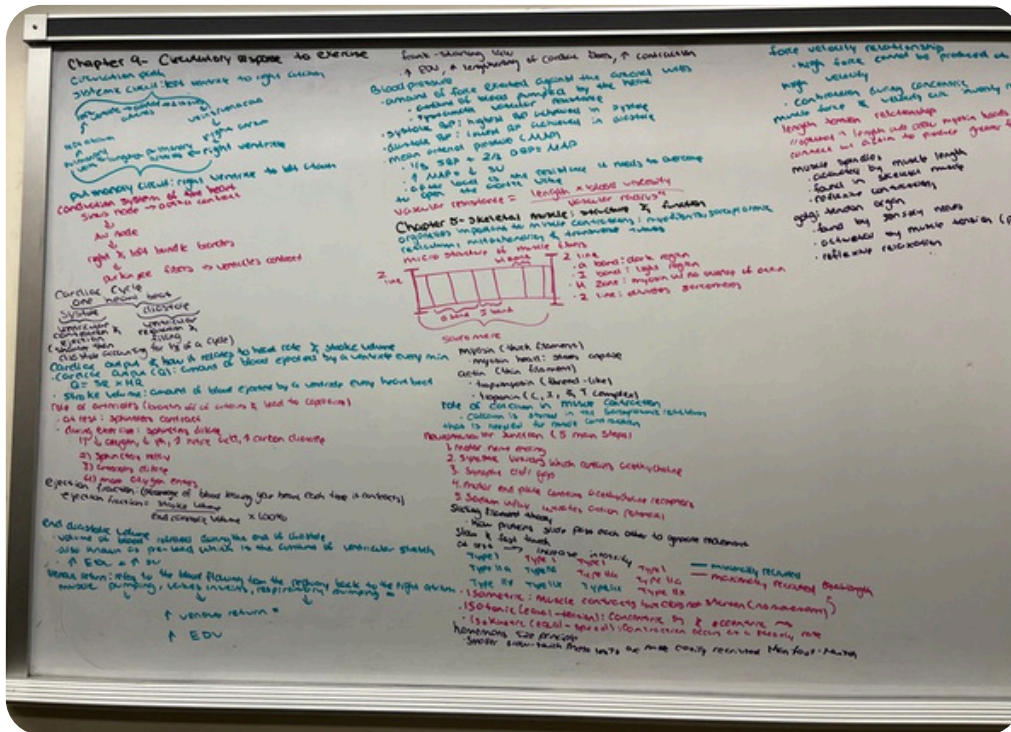 Chapter 9- Circulatory response to exercise
circulation path
systemic circuit: left ventricle to right atrium
right atrium
right ventricle
pulmonary circuit: right ventricle to left atrium
conduction system of the heart
sinus node → atria contract
↓
AV node
↓
right & left bundle branches
↓
purkinjee fibers → ventricles contract
Cardiac Cycle
one heart beat
systole diastole
ventricular contraction & ejection
ventricular relaxation & filling
(shorter than diastole accounting for 1/3 of a cycle)
Cardiac output & how it related to heart rate & stroke volume
· Cardiac output (Q): amount of blood ejected by a ventricle every min
Q =
· stroke volume: amount of blood ejected by a ventricle every heart beat
role of arterioles (branches off of arteries & lead to capillaries)
· at rest: sphincters contract
· during exercise: sphincters dilate
1) ↓ oxygen, ↓ ph, ↑ nitric oxide, ↑ carbon dioxide
2) sphincters relax
3) dilate
4) more oxygen enters
ejection fraction: (percentage of blood leaving your heart each time it contracts)
ejection fraction = stroke volume
end diastolic volume x 100%
end diastolic volume
· volume of blood during the end of diastole
· also known as pre-load which is the amount of ventricular stretch
· ↑ EDV = ↑ SV
venous return: refers to the blood flowing from the back to the right atrium
muscle pumping, valves in veins, respiratory pumping =
↑ venous return =
↑ EDV
frank-starling law
· ↑ EDV, ↑ lengthening of cardiac fibers, ↑ contraction
Blood pressure
· amount of force exerted against the arterial walls
· amount of blood pumped by the heart
vascular resistance
· systolic BP: highest BP achieved in systole
· diastolic BP: lowest BP achieved in diastole
· mean arterial pressure (MAP)
· 1/3 SBP + 2/3 DBP = MAP
· ↑ MAP = ↓ SV
· after load is the resistance it needs to overcome
to open the aortic valve
vascular resistance = length x blood viscosity
vascular radius⁴
Chapter 5- Skeletal muscle: structure & function
organelles important to muscle contractions: myofibrils, sarcoplasmic
reticulum, mitochondria, & transverse tubules
micro structure of muscle fibers
Z line
Z line
H band
A band I band
sarcomere
· a band: dark region
· I band: light region
· H zone: myosin w/ no overlap of actin
· Z line: sarcomeres
myosin (thick filament)
· myosin head:
actin (thin filament)
· tropomyosin (thread-like)
· troponin (C, I, & T complex)
role of calcium in muscle contraction
· calcium is stored in the sarcoplasmic reticulum
that is needed for muscle contraction
Neuromuscular Junction (5 main steps)
1. motor nerve ending
2. synaptic which contains acetylcholine
3. synaptic cleft/gaps
4. motor end plate contains acetylcholine receptors
5. sodium influx action potential
sliding filament theory
· how proteins slide past each other to generate movement
slow & fast twitch
at rest → increase intensity
Type I Type I Type I Type I
Type IIa Type IIa Type IIa Type IIa
Type IIx Type IIx Type IIx Type IIx
minimally recruited
maximally recruited
· Isometric: muscle contracts but does not shorten (no movement)
· Isotonic (equal-tension): concentric & eccentric
· Isokinetic (equal-speed): contraction occurs at a steady rate
hennemans size principle
· smaller slow-twitch motor units are more easily recruited than fast-twitch
force velocity relationship
· high force cannot be produced at
high velocity
· contraction during concentric
muscle force & velocity are
length tension relationship
connect w/ actin to produce greater
muscle spindles
· activated by muscle length
· found in skeletal muscle
· reflexive contraction
golgi tendon organ
· found by sensory nerves
· activated by muscle tension
· reflexive relaxation